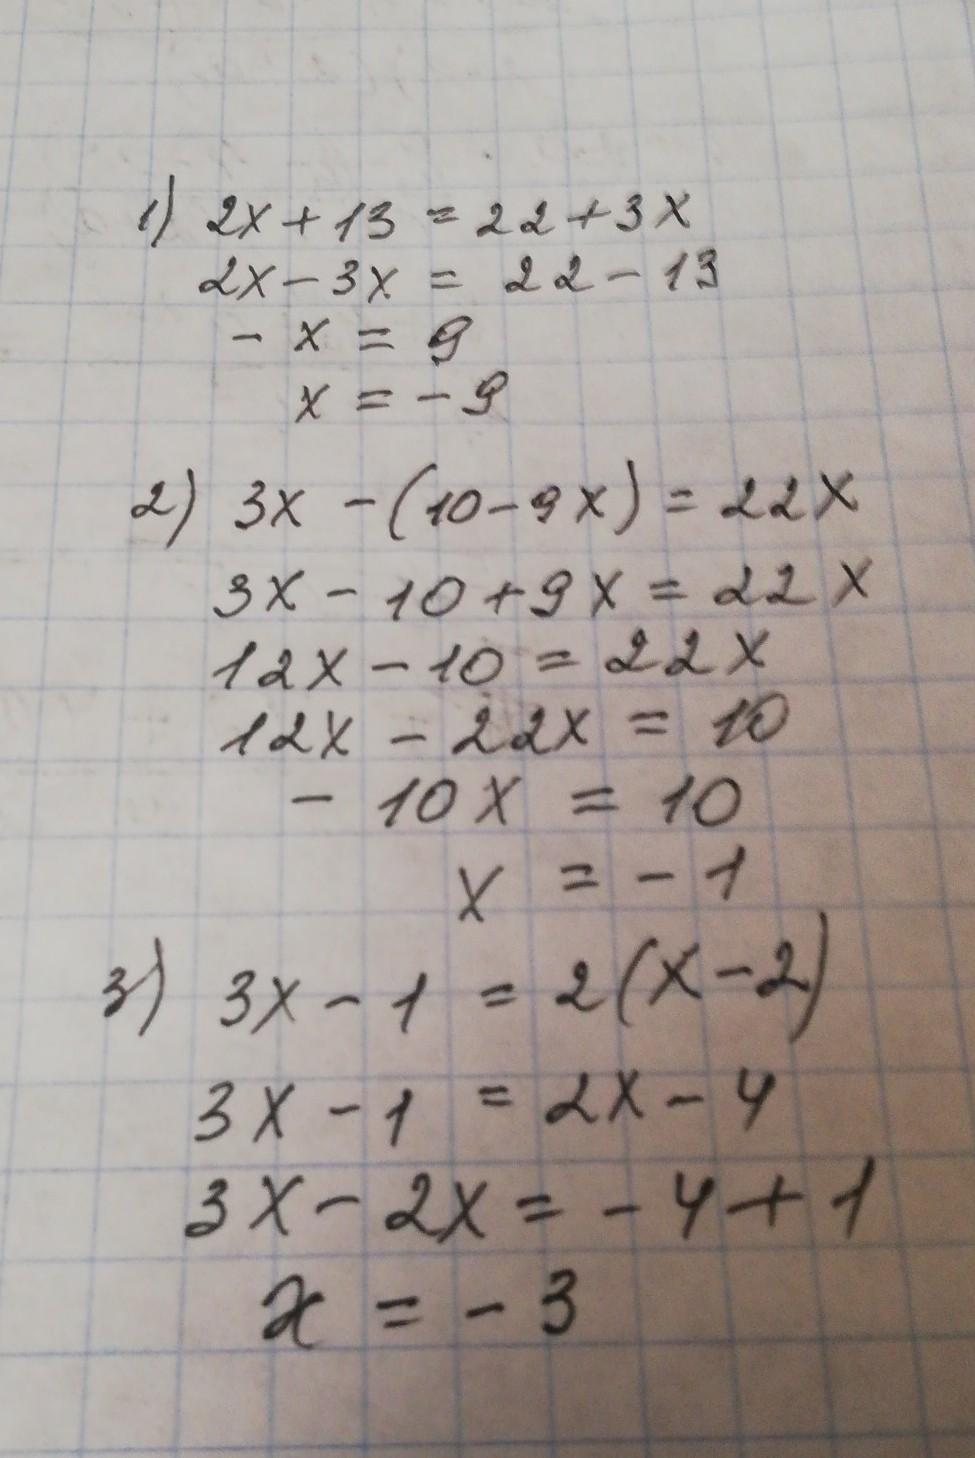 1) 2x + 13 = 22 + 3x
2x - 3x = 22 - 13
- x = 9
x = - 9
2) 3x - (10 - 9x) = 22x
3x - 10 + 9x = 22x
12x - 10 = 22x
12x - 22x = 10
- 10x = 10
x = - 1
3) 3x - 1 = 2(x - 2)
3x - 1 = 2x - 4
3x - 2x = - 4 + 1
x = - 3